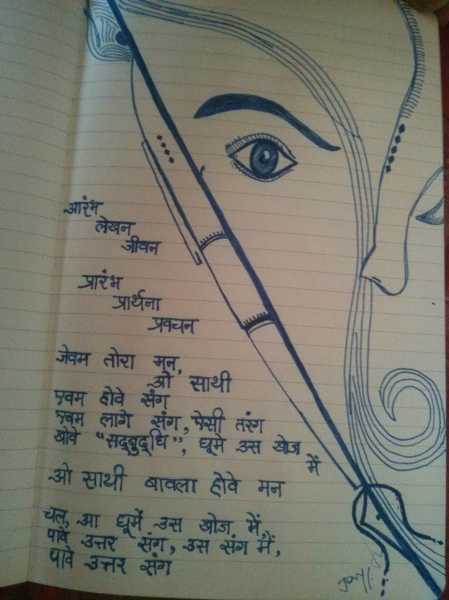 आरंभ
लेखन
जीवन
प्रारंभ
प्रार्थना
प्रवचन
जेवम तोरा मन,
ओ साथी
होवे संग
लागे संग, तरंग
"सद्बुद्धि", घूमे उस खोज
में
ओ साथी बावला होवे मन
चल, आ घूमें उस खोज में,
पावे उत्तर संग, उस संग में,
पावे उत्तर संग